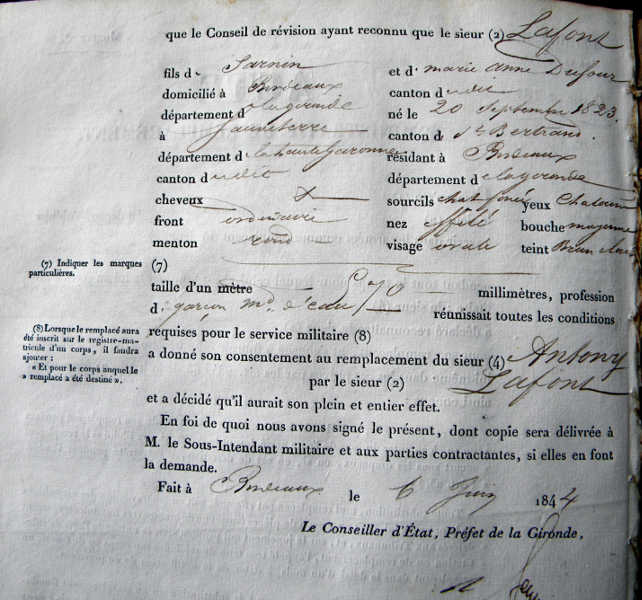 que le Conseil de révision ayant reconnu que le sieur (2) Lafont
fils d Sarnin et d marie anne Dufour
domicilié à Bordeaux canton d udit
département d la gironde né le 20 Septembre 1823
à Sauveterre canton d St Bertrand
département d la haute Garonne résidant à Bordeaux
canton d udit département d la gironde
cheveux sourcils chat foncé yeux Chatain
front ordinaire nez effilé bouche moyenne
menton rond visage ovale teint Brun
(7) Indiquer les marques particulières.
(7)
taille d'un mètre 670 millimètres, profession
d garçon md d'eau réunissait toutes les conditions
(8) Lorsque le remplacé aura
été inscrit sur le registre-ma-
tricule d'un corps, il faudra
ajouter :
« Et pour le corps auquel le
« remplacé a été destiné ».
requises pour le service militaire (8)
a donné son consentement au remplacement du sieur (4) Antony
par le sieur (2) Lafont
et a décidé qu'il aurait son plein et entier effet.
En foi de quoi nous avons signé le présent, dont copie sera délivrée à
M. le Sous-Intendant militaire et aux parties contractantes, si elles en font
la demande.
Fait à Bordeaux le 6 Juin 1844
Le Conseiller d'État, Préfet de la Gironde,